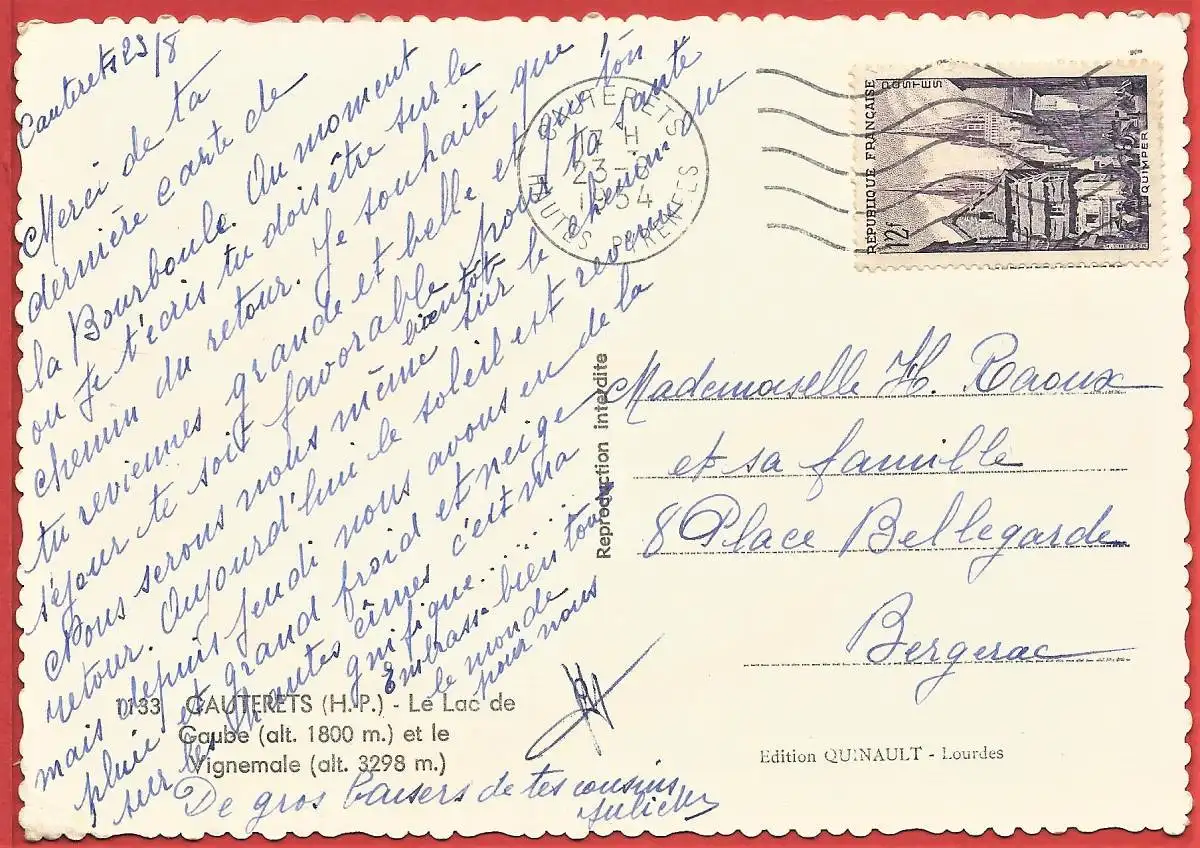 Cauterets 23/8
Merci de ta
dernière carte de
la Bourboule. Au moment
où je t'écris tu dois être sur le
chemin du retour. Je souhaite que
tu reviennes grande et belle et que ton
séjour te soit favorable pour ta santé
Nous serons nous même bientôt sur le chemin du
retour. Aujourd'hui le soleil est revenu
mais depuis jeudi nous avons eu de la
pluie et grand froid et neige
sur les hautes cîmes c'est ma
gnifique......
Embrasse bien tout
le monde
pour nous
De gros baisers de tes cousins
1133 CAUTERETS (H.-P.) - Le Lac de
Gaube (alt. 1800 m.) et le
Vignemale (alt. 3298 m.)
Reproduction interdite
CAUTERETS
17 H
23-8
1954
HAUTES PYRENEES
REPUBLIQUE FRANÇAISE
POSTES
12F
QUIMPER
Mademoiselle H. Raoux
et sa famille
8 Place Bellegarde
Bergerac
Edition QUINAULT - Lourdes